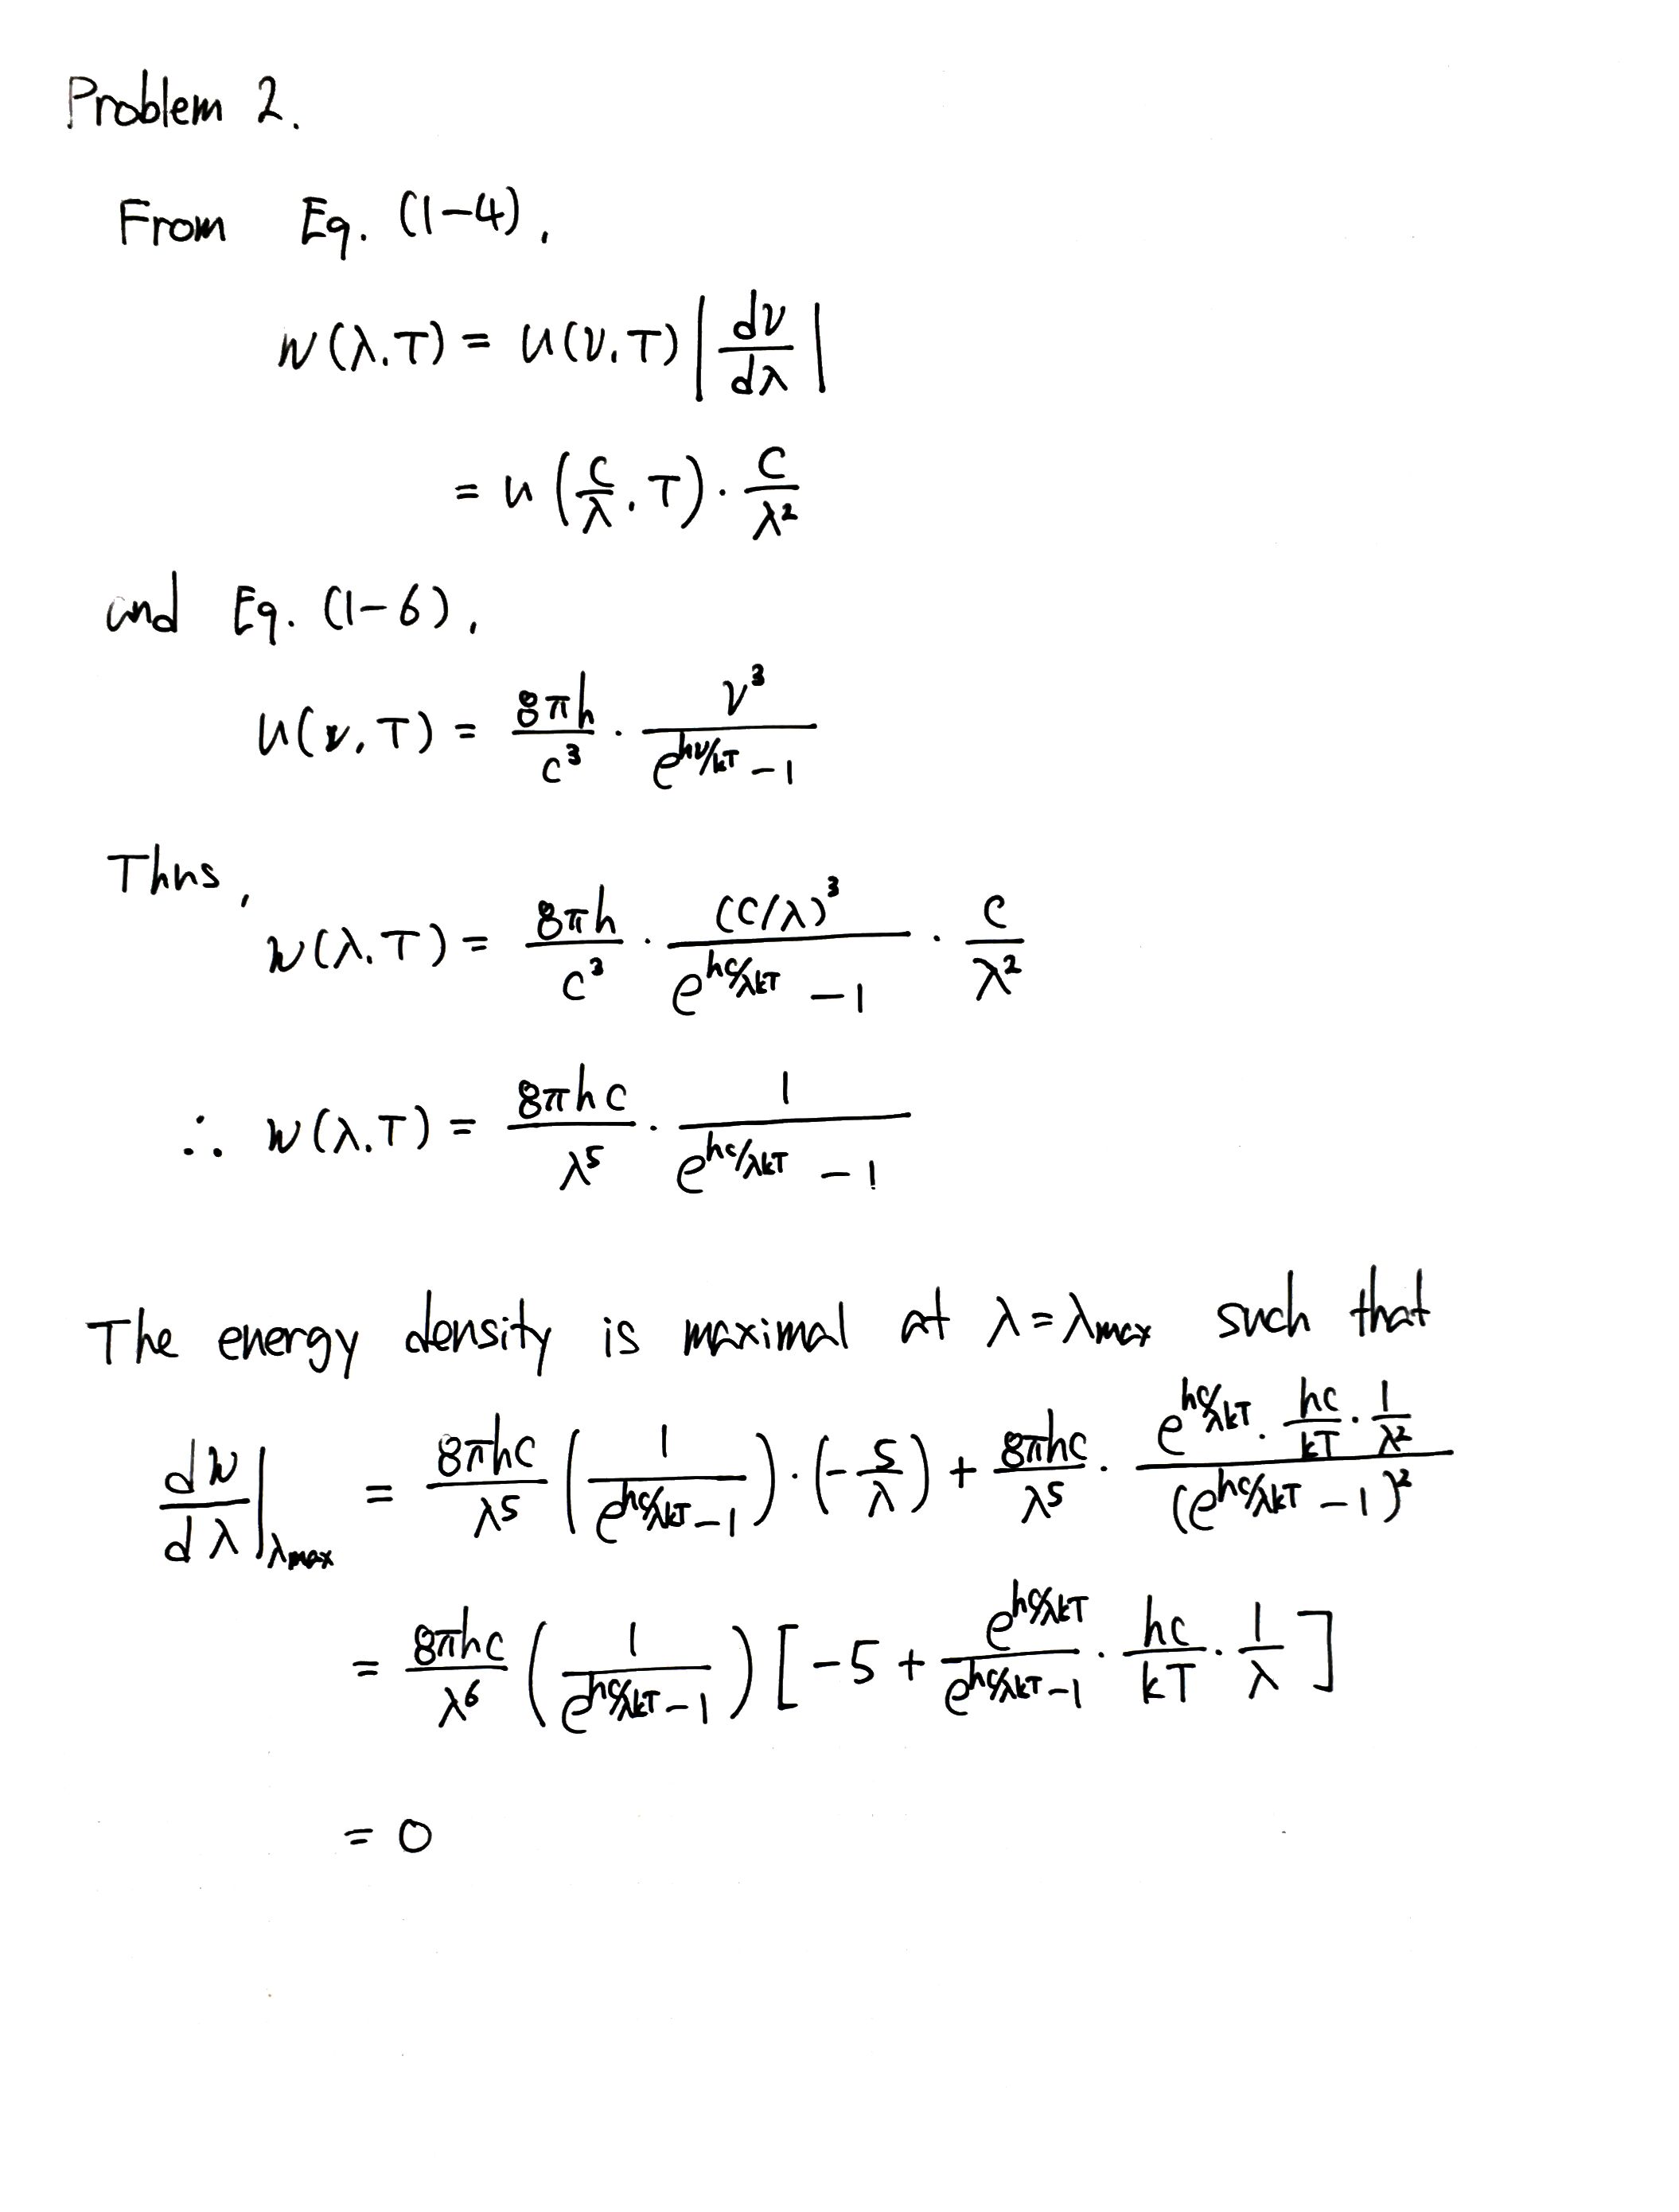 Problem 2.
From Eq. (1-4),
w(λ,T) = u(ν,T) |dν/dλ|
= u(c/λ, T) · c/λ²
and Eq. (1-6),
u(ν,T) = 8πh/c³ · ν³/(e^{hν/kT} - 1)
Thus,
w(λ,T) = 8πh/c³ · (c/λ)³/(e^{hc/λkT} - 1) · c/λ²
∴ w(λ,T) = 8πhc/λ⁵ · 1/(e^{hc/λkT} - 1)
The energy density is maximal at λ = λmax such that
dw/dλ|λmax = 8πhc/λ⁵ (1/(e^{hc/λkT} - 1)) · (-5/λ) + 8πhc/λ⁵ · (e^{hc/λkT} · hc/kT · 1/λ²)/(e^{hc/λkT} - 1)²
= 8πhc/λ⁶ (1/(e^{hc/λkT} - 1)) [-5 + e^{hc/λkT}/(e^{hc/λkT} - 1) · hc/kT · 1/λ]
= 0